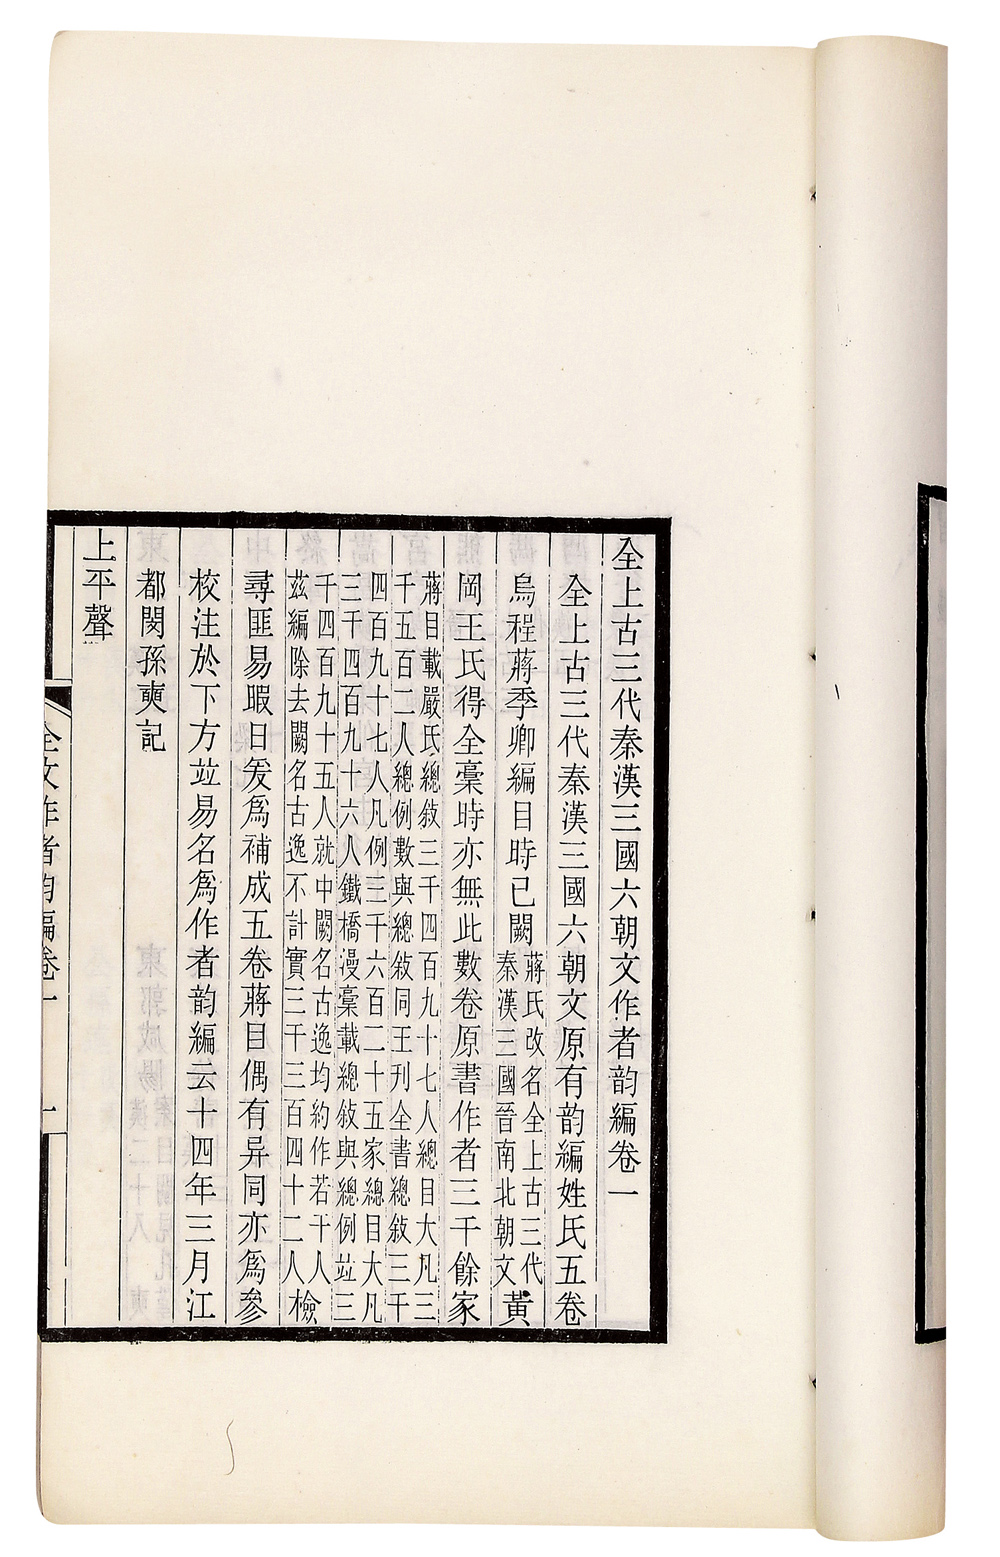 全上古三代秦漢三國六朝文作者韵編卷一
全上古三代秦漢三國六朝文原有韵編姓氏五卷
烏程蔣季卿編目時已闕
蔣氏改名全上古三代
秦漢三國晉南北朝文
黃
岡王氏得全藁時亦無此數卷原書作者三千餘家
蔣目載嚴氏總敘三千四百九十七人總目大凡三
千五百二人總例數與總敘同王刊全書總敘三千
四百九十七人凡例三千六百二十五家總目大凡
三千四百九十六人鐵橋漫藁載總敘與總例竝三
千四百九十五人就中闕名古逸均約作若干人
茲編除去闕名古逸不計實三千三百四十二人
檢
尋匪易暇日爰爲補成五卷蔣目偶有异同亦爲參
校注於下方竝易名爲作者韵編云十四年三月江
都閔孫奭記
上平聲
全文作者韵編卷一
一